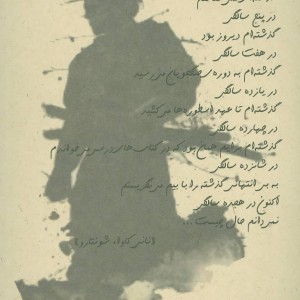 در پنج سالگی
گذشته‌ام دیروز بود
در هفت سالگی
گذشته‌ام به دوره‌ی می‌رسید
در یازده سالگی
گذشته‌ام تا عهد اسطوره‌ها می‌کشید
در چهارده سالگی
گذشته‌ام بود که در کتاب‌های درسی می‌خوانده‌ام
در شانزده سالگی
به بی‌انتهایی گذشته با بیم می‌نگریستم
اکنون در هجده سالگی
نمی‌دانم حال چیست...
(تانی‌کاواء شونتارو)